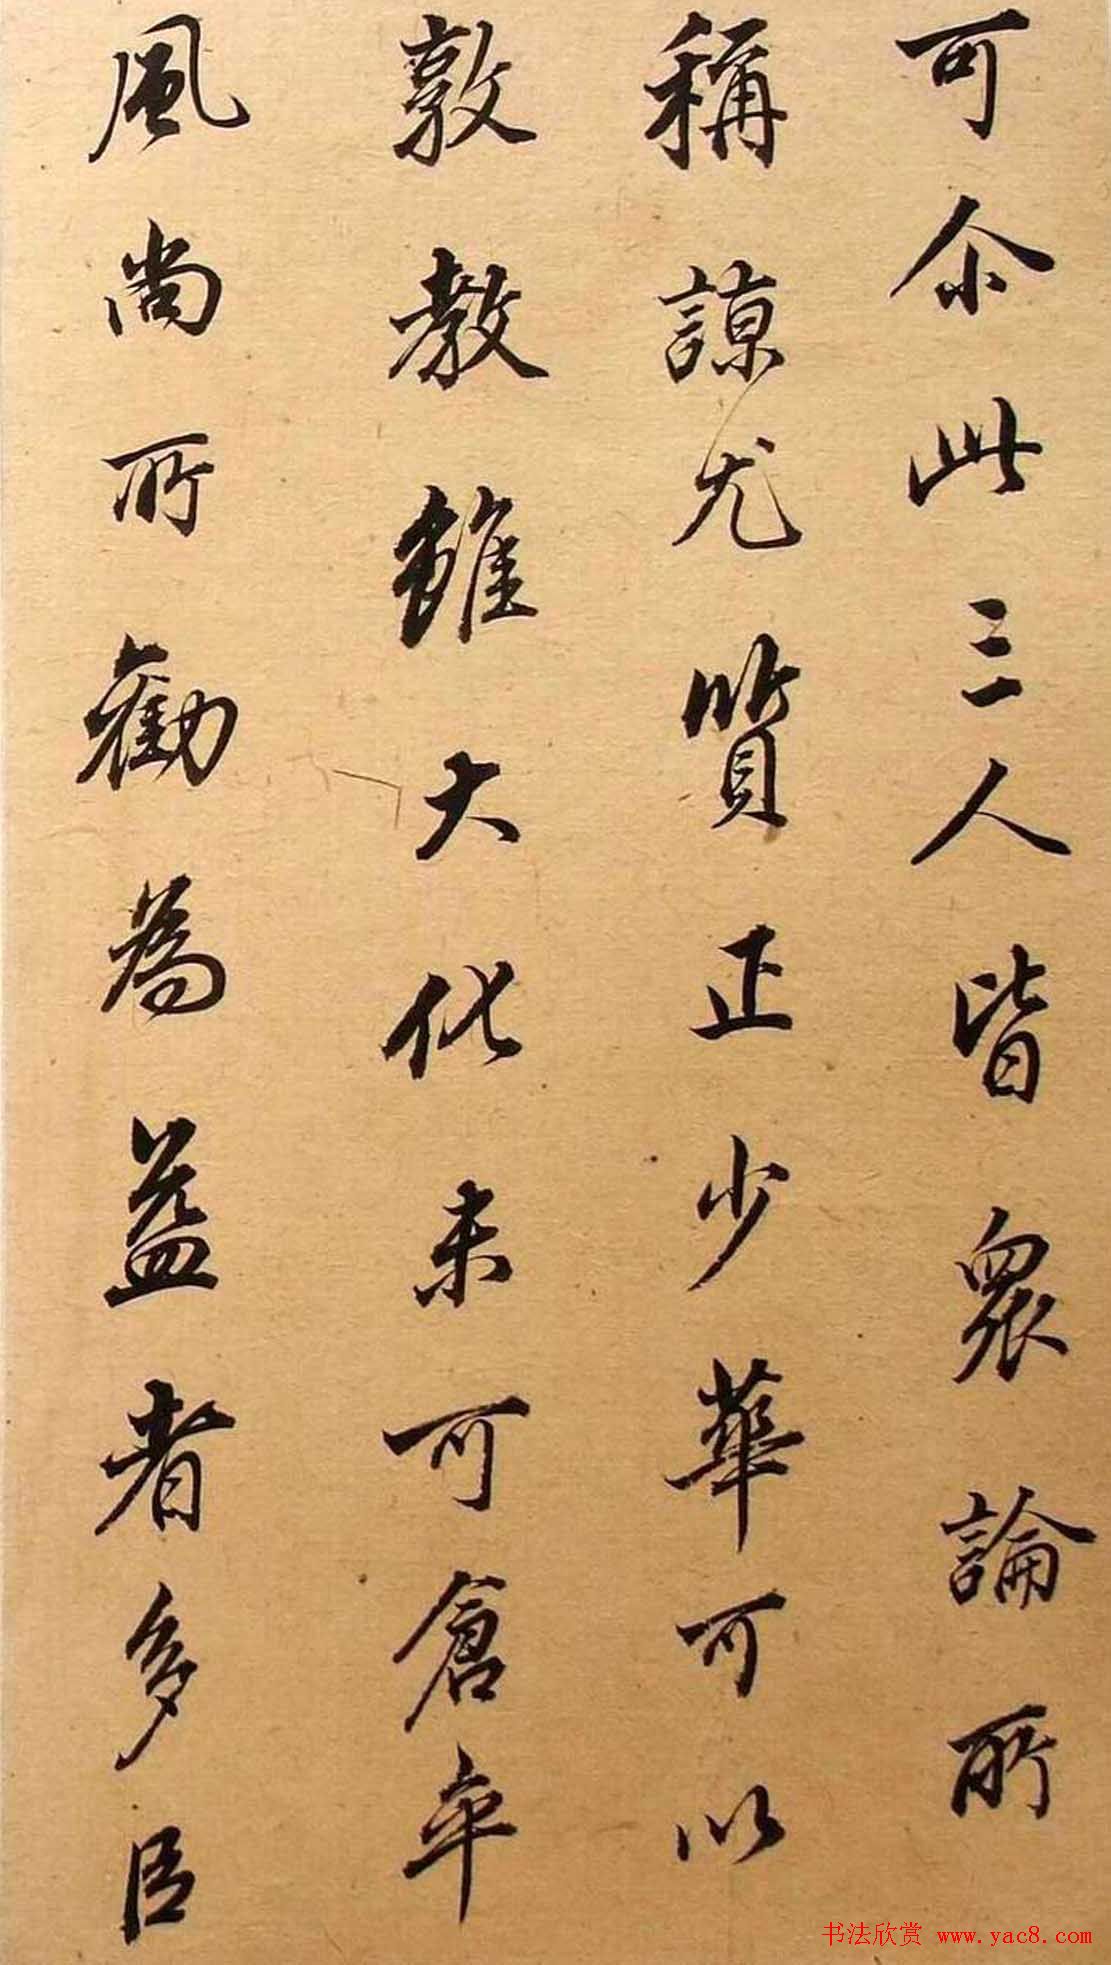 可尒此三人皆衆論所
稱諒尤質正少華可以
敦教雖大化未可倉卒
風尚所勸為益者多臣
书法欣赏 www.yac8.com